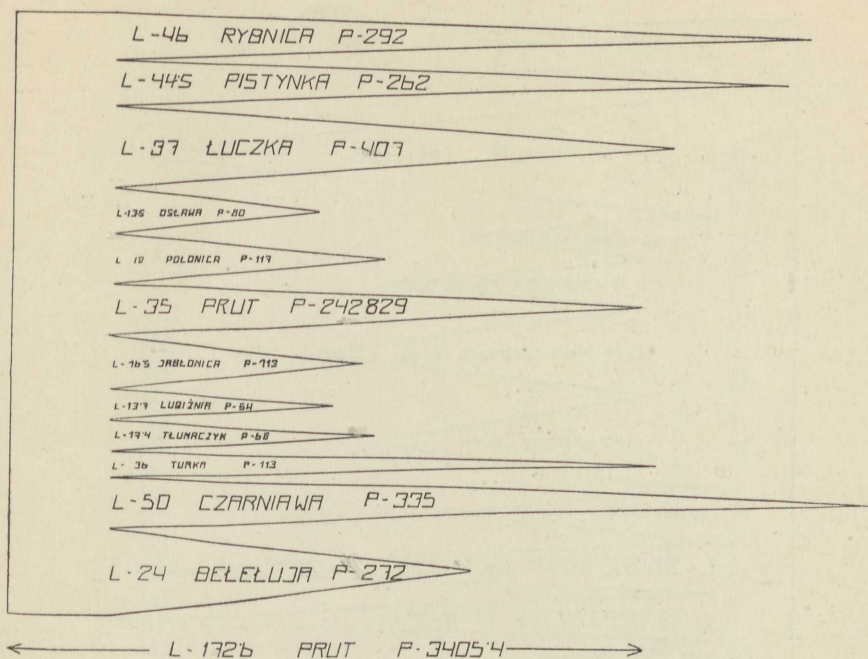 L-46 RYBNICA P-292
L-44'5 PISTYNKA P-262
L-37 ŁUCZKA P-407
L-13'5 OSŁAWA P-80
L 18 POLONICA P-117
L-35 PRUT P-242829
L-16'5 JABŁONICA P-113
L-13'7 LUBIŻNIA P-54
L-17'4 TŁUMACZYK P-68
L-36 TURKA P-113
L-50 CZARNIAWA P-335
L-24 BEŁEŁUJA P-272
L-172'6 PRUT P-3405'4